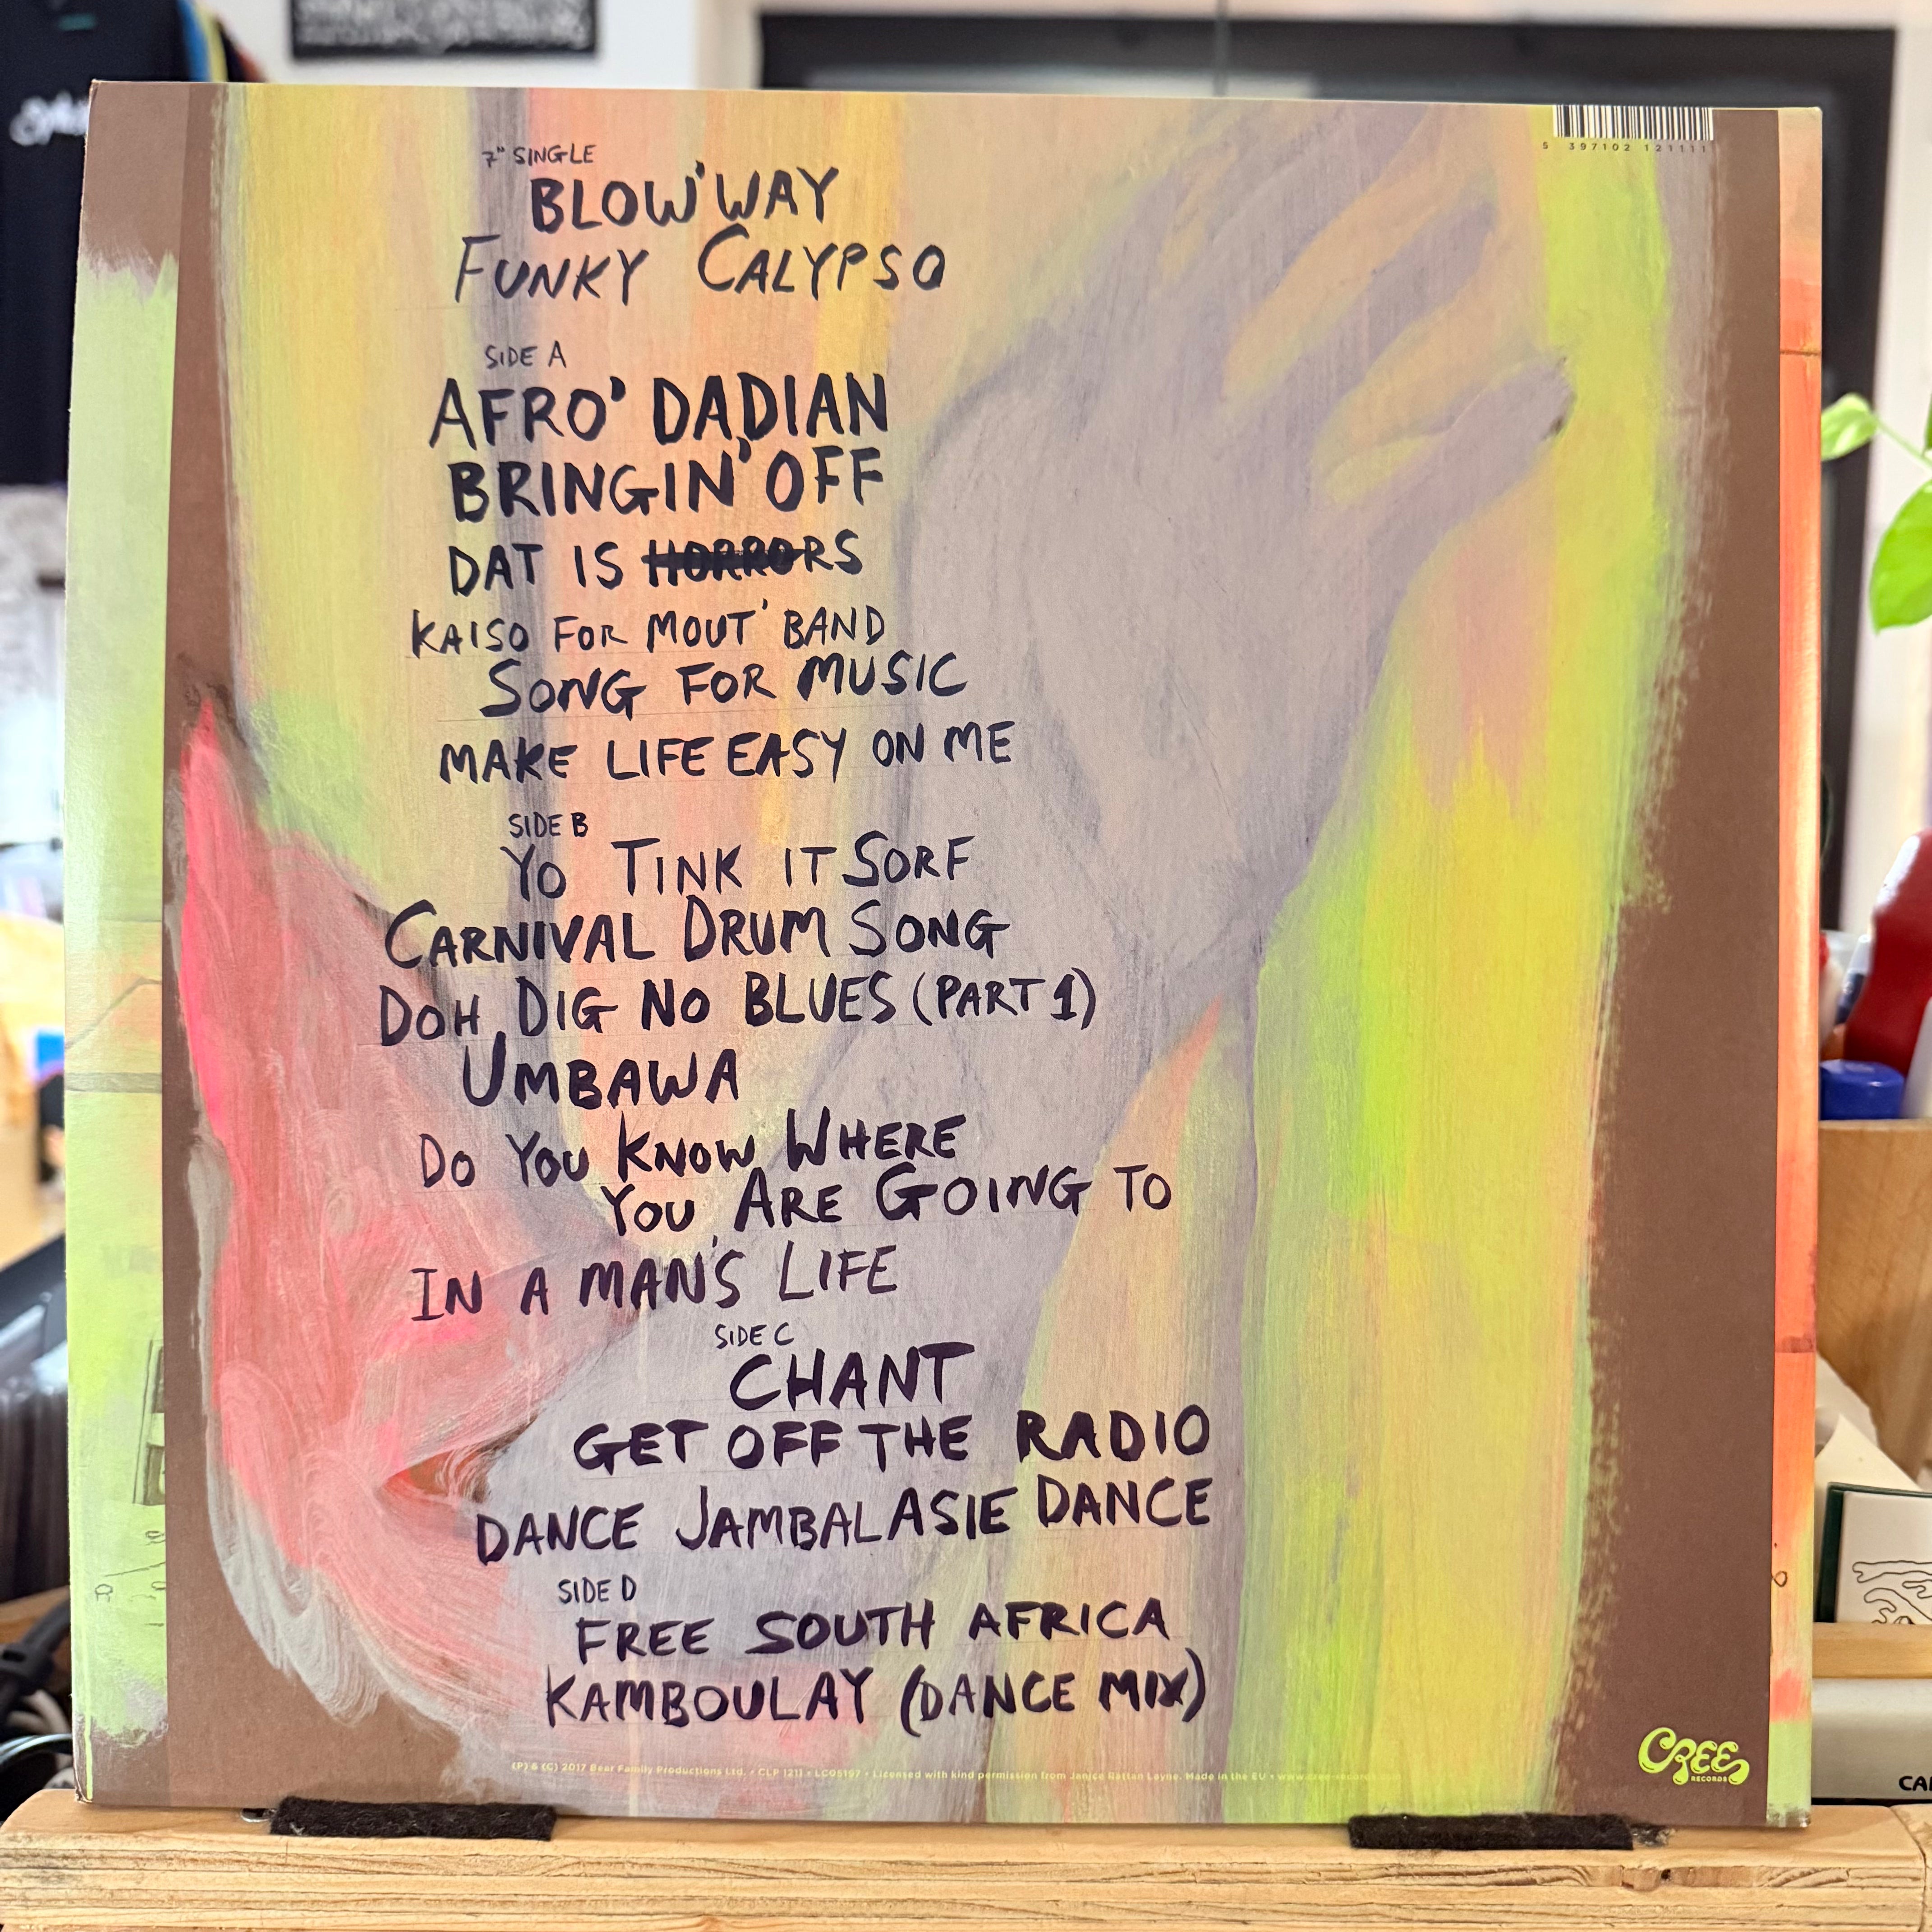 5 397102 121111
7" SINGLE
BLOW'WAY
FUNKY CALYPSO
SIDE A
AFRO' DADIAN
BRINGIN' OFF
DAT IS HORRORS
KAISO FOR MOUT' BAND
SONG FOR MUSIC
MAKE LIFE EASY ON ME
SIDE B
YO TINK IT SORF
CARNIVAL DRUM SONG
DOH DIG NO BLUES (PART 1)
UMBAWA
DO YOU KNOW WHERE
YOU ARE GOING TO
IN A MAN'S LIFE
SIDE C
CHANT
GET OFF THE RADIO
DANCE JAMBALASIE DANCE
SIDE D
FREE SOUTH AFRICA
KAMBOULAY (DANCE MIX)
(P) & (C) 2017 Bear Family Productions Ltd. • CLP 1211 • LC05197 • Licensed with kind permission from Janice Rattan Layne. Made in the EU •
CREE
RECORDS